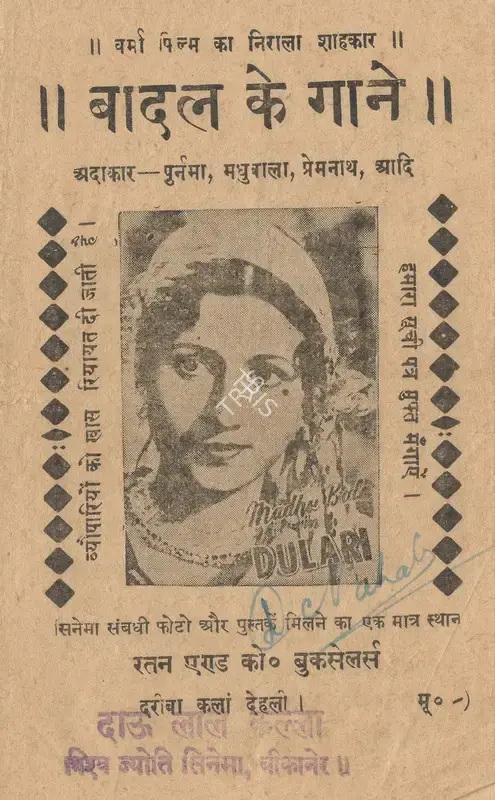 ॥ वर्मा फिल्म का निराला शाहकार ॥
॥ बादल के गाने ॥
अदाकार — पुर्नमा, मधुबाला, प्रेमनाथ, आदि
व्यौपारियों को खास रियायत दी जाती है ।
हमारा सूची पत्र मुफ्त मँगाएँ ।
TRIS
Madhu Bala
in
DULARI
सिनेमा संबधी फोटो और पुस्तकें मिलने का एक मात्र स्थान
रतन एण्ड को० बुकसेलर्स
दरीबा कलां देहली ।
मू० -)
दाऊ लाल
विश्व ज्योति सिनेमा, बीकानेर ॥